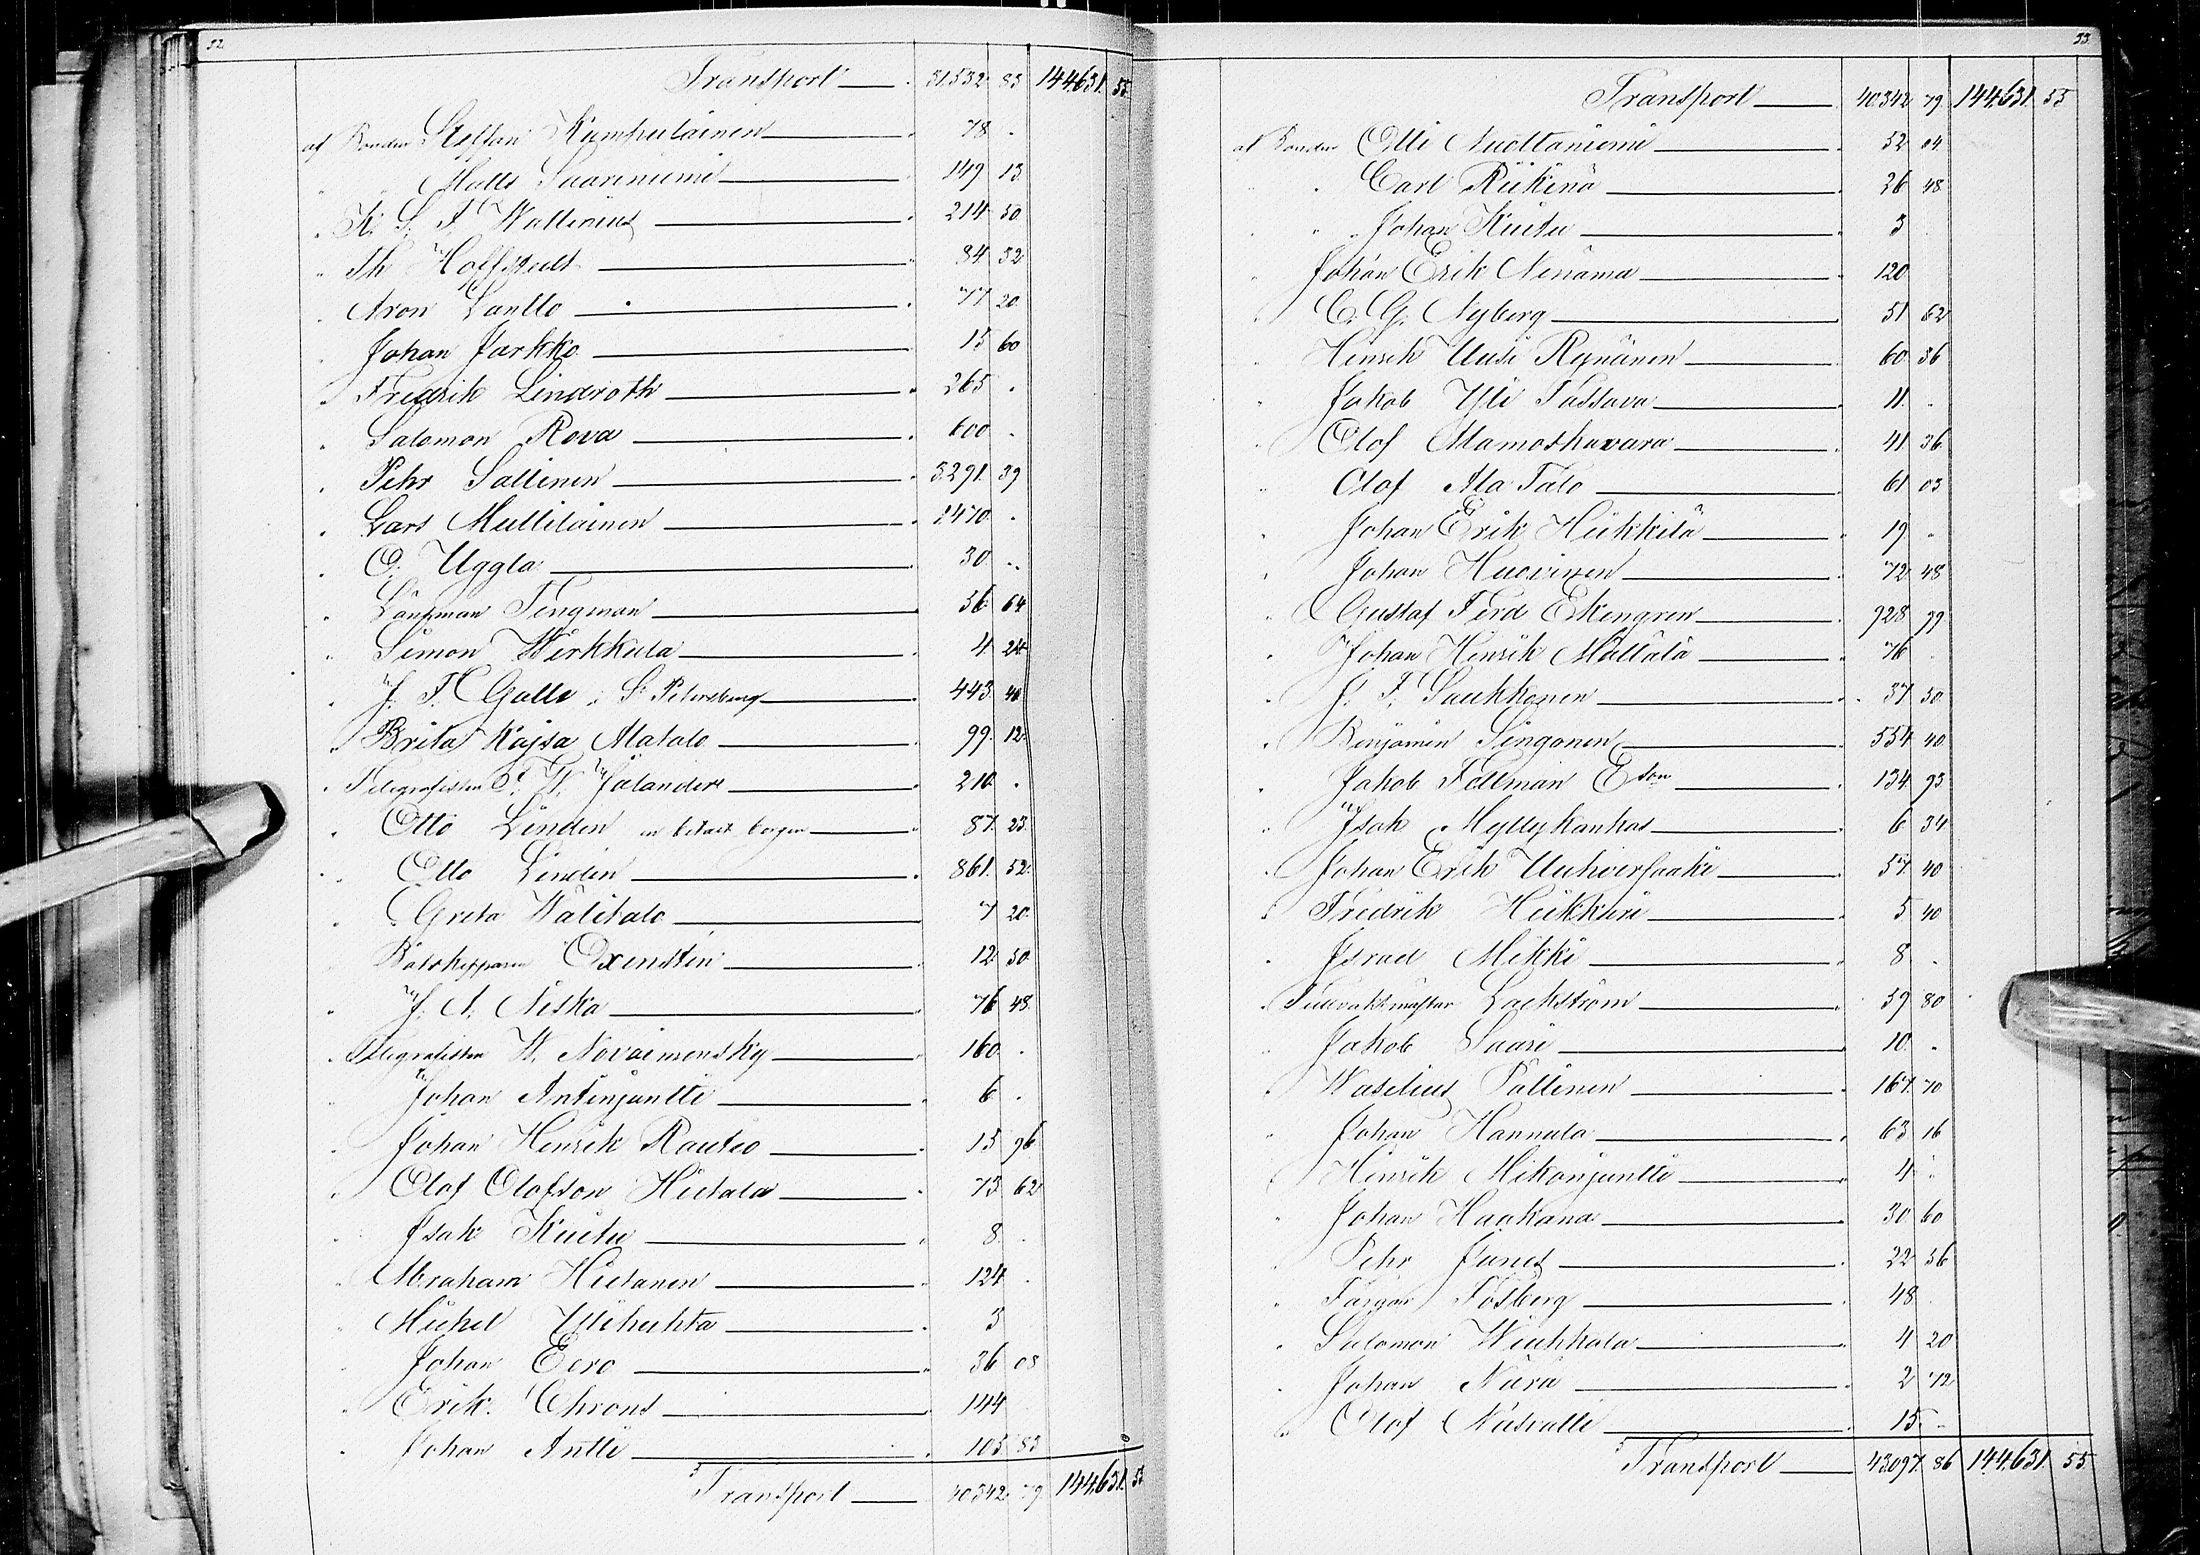 52
Transport 31.532 83 144.631. 55.
af Bonden Steffan Kumpulainen 78 .
" " Matts Saariniemi 149 13
" K. S. F. Wallenius 214 50.
" Th Hoffstedt 84 32
" Aron Lantto 77 20.
" Johan Jarkko 15 60
" Fredrik Lindroth 265 .
" Salomon Rova 600 .
" Pehr Sallinen 3291. 39
" Lars Multilainen 2470. .
" O. Uggla 30 ..
" Länsman Tengman 36 64
" Simon Wirkkula 4 24
" J. F. Galle, St Petersburg 443. 46
" Brita Kajsa Alatalo 99. 12
" Telegrafisten F. W. Jalander 210. .
" Otto Linden 87. 23.
" Otto Linden 861. 52.
" Greta Walitalo 7 20.
Båtskepparen Oxensten 12 50.
" J. A. Niska 76 48.
" Telegrafisten W. Novaimensky 160. .
" Johan Antinjuntti 6 .
" Johan Henrik Rautio 15 96
" Olof Olofson Hietala 73. 62
" Isak Kuitu 8. .
" Abraham Hietanen 124 .
" Michel Ylihuhta 3
" Johan Eero 36 08
" Erik Chrons 144
" Johan Antti 103 83
Transport 40342 79. 144.631. 55
53
Transport 40342 79 144.631. 55
af Bonden Olli Nuottaniemi 52 04
" " Carl Riikinä 26 48
" " Johan Kuitu 3
Johan Erik Niinämä 120
" C. G. Nyberg 51 62
Henrik Uusi Rynänen 60. 36
" Jakob Yli Tassava 11. .
" Olof Mamoskavaara 41 36
" Olof Ala Talo 61 03
" Johan Erik Heikkilä 19 "
" Johan Huovinen 72 48
" Gustaf Ferd Ekengren 928 99
" Johan Henrik Mättälä 76 .
" J. F. Saukkonen 37 50
" Benjamin Singonen 554 40.
" Jakob Fellman Eson 134. 93
" Isak Myllykankas 6 34
" Johan Erik Uuhverfaaki 57. 40
" Fredrik Heikkuri 5 40
" Israel Mikki 8 .
" Tullvaktmästar Lackström 59 80
" Jakob Saari 10. .
" Wasilius Pallinen 167. 70
" Johan Hannula 63 16
" Henrik Mikonjuntti 4 "
" Johan Haakana 30 60
" Pehr Junes 22 56
" Färgar Fosberg 48
" Salomon Wiukkala 4 20
" Johan Närä 2 72
" Olof Niesvalli 15. "
Transport 43.097. 86 144.631. 55.